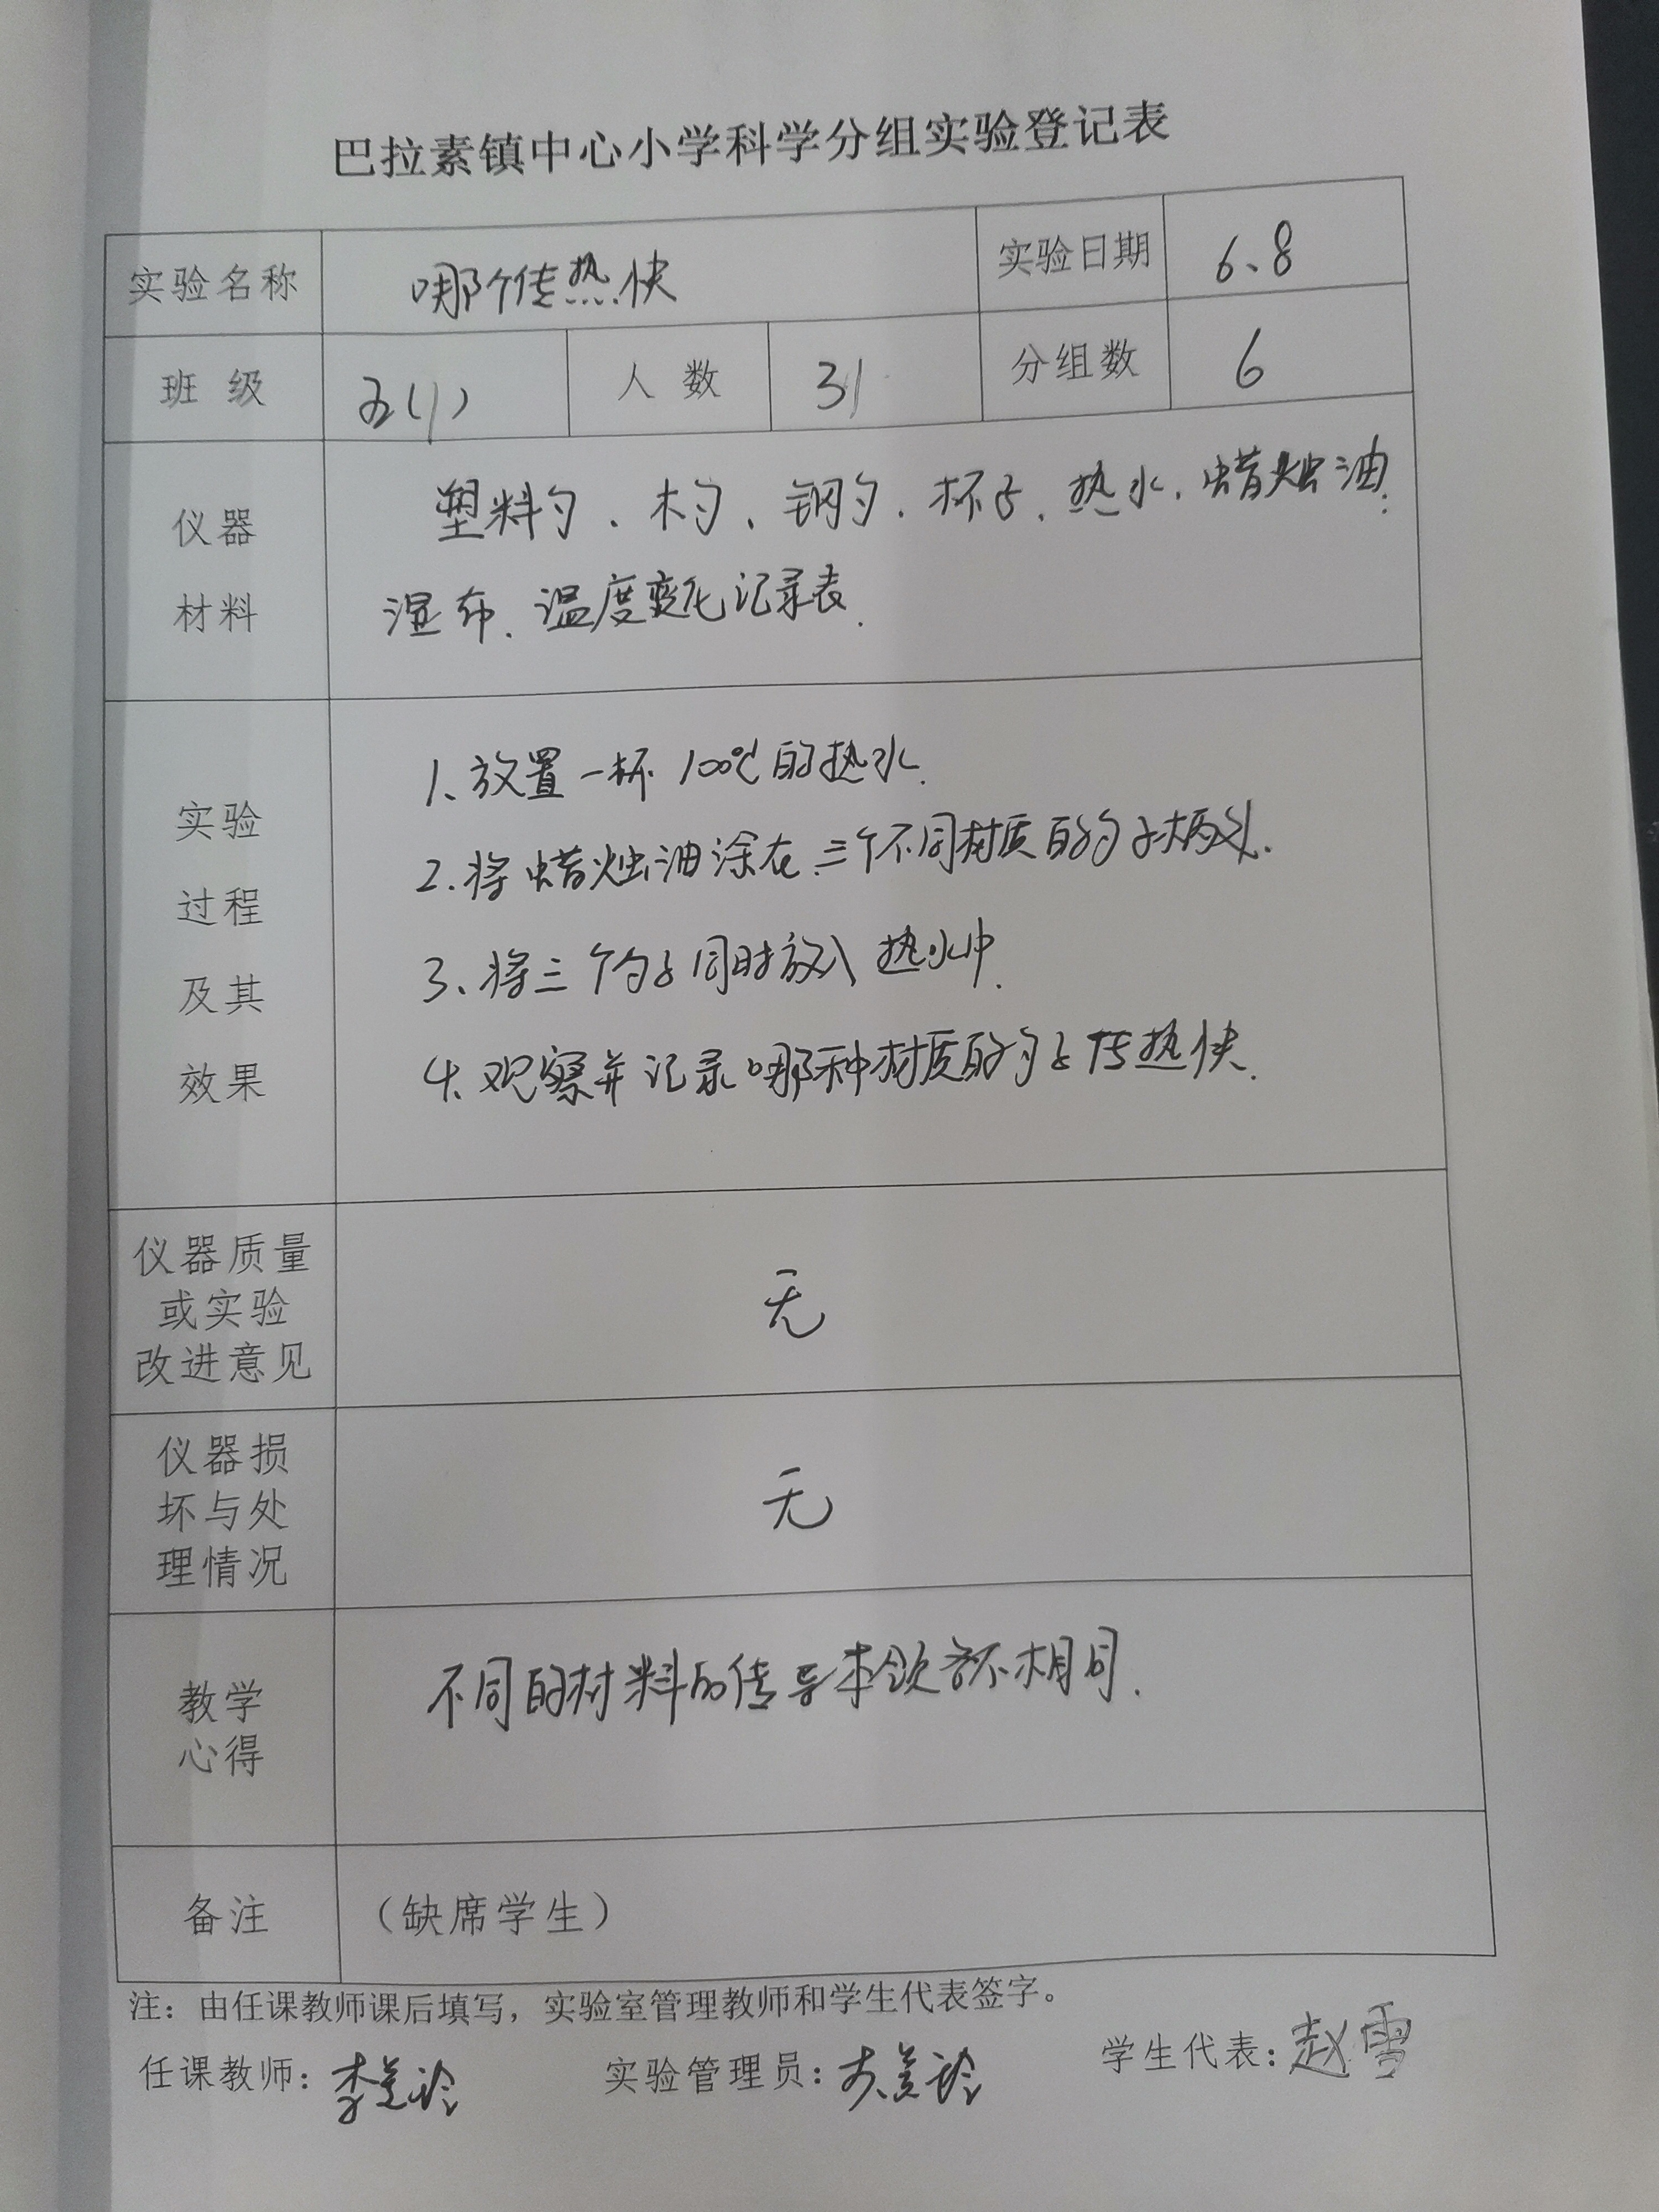 巴拉素镇中心小学科学分组实验登记表
实验名称 哪个传热快 实验日期 6、8
班 级 五(1) 人 数 31 分组数 6
仪器
材料
塑料勺、木勺、钢勺、杯子、热水、蜡烛油、
湿布、温度变化记录表.
实验
过程
及其
效果
1、放置一杯100℃的热水.
2.将蜡烛油涂在三个不同材质的勺子柄头.
3、将三个勺子同时放入热水中.
4.观察并记录哪种材质的勺子传热快.
仪器质量
或实验
改进意见
无
仪器损
坏与处
理情况
无
教学
心得
不同的材料的传导本领都不相同.
备注 （缺席学生）
注：由任课教师课后填写，实验室管理教师和学生代表签字。
任课教师： 实验管理员： 学生代表：赵雪